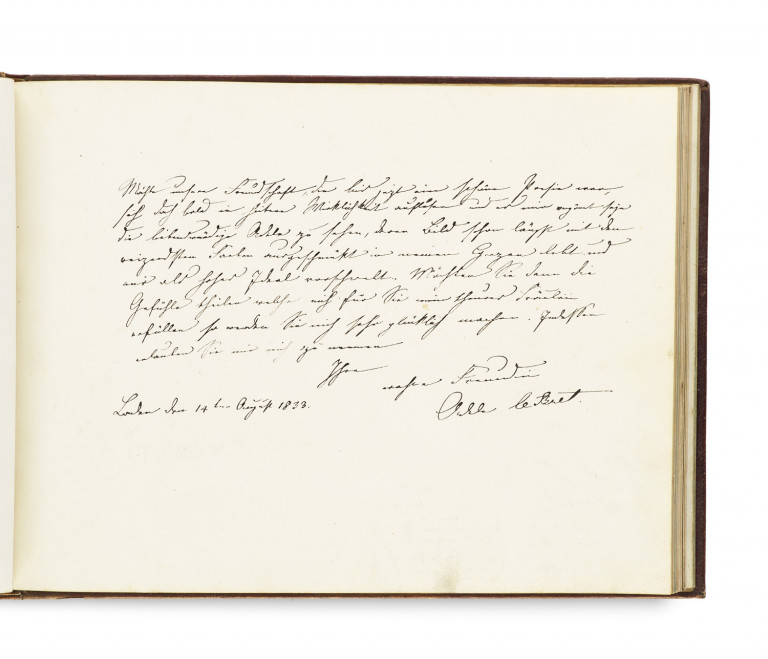 Möchte unsere Freundschaft, die bis jetzt eine schöne Poesie war,
sich doch bald in Wirklichkeit auflösen und es mir vergönt seyn
die liebenswürdige Adele zu sehen, deren Bild schon längst mit den
reizendsten Farben ausgeschmückt in meinem Herzen lebt und
mir als hohes Ideal vorschwebt. Möchten Sie dann die
Gefühle theilen welche mich für Sie mein theures Fräulein
erfüllen so werden Sie mich sehr glücklich machen. Indessen
erlauben Sie mir mich zu nennen
Ihre
wahre Freundin
Baden den 14ten August 1833.
Adele